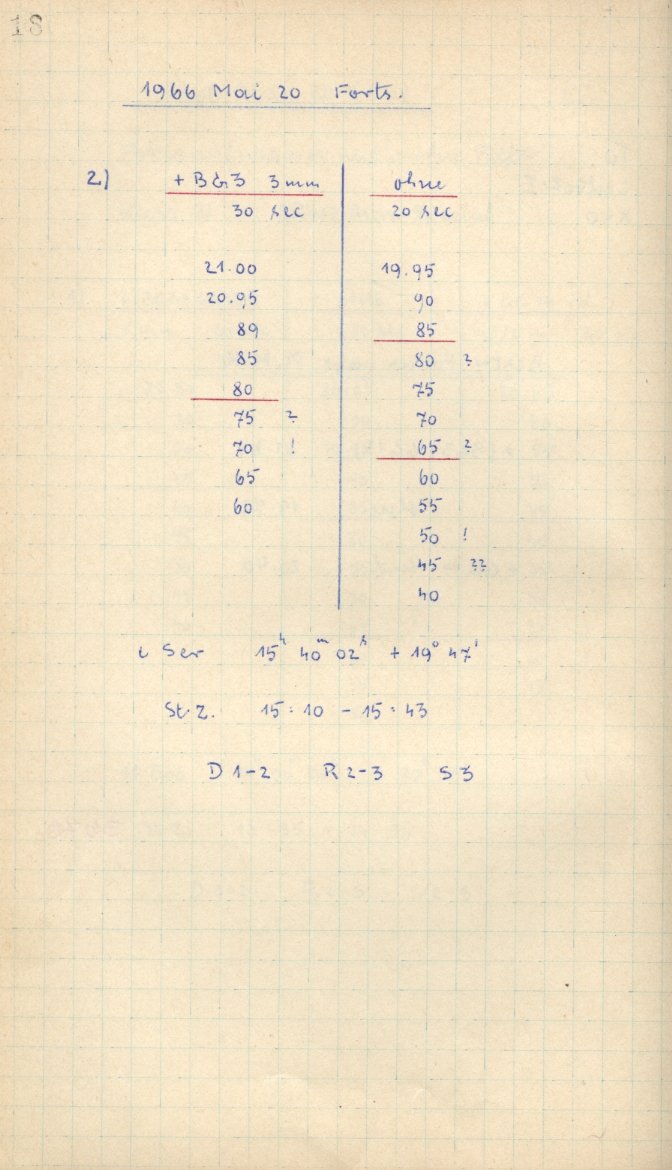 18
1966 Mai 20 Forts.
2) + BG 3 3 mm ohne
30 sec 20 sec
21.00 19.95
20.95 90
89 85
85 80 ?
80 75
75 ? 70
70 ! 65 ?
65 60
60 55
50 !
45 ??
40
ι Ser 15h 40m 02s + 19° 47'
St. Z. 15:10 - 15:43
D 1-2 R 2-3 S 3